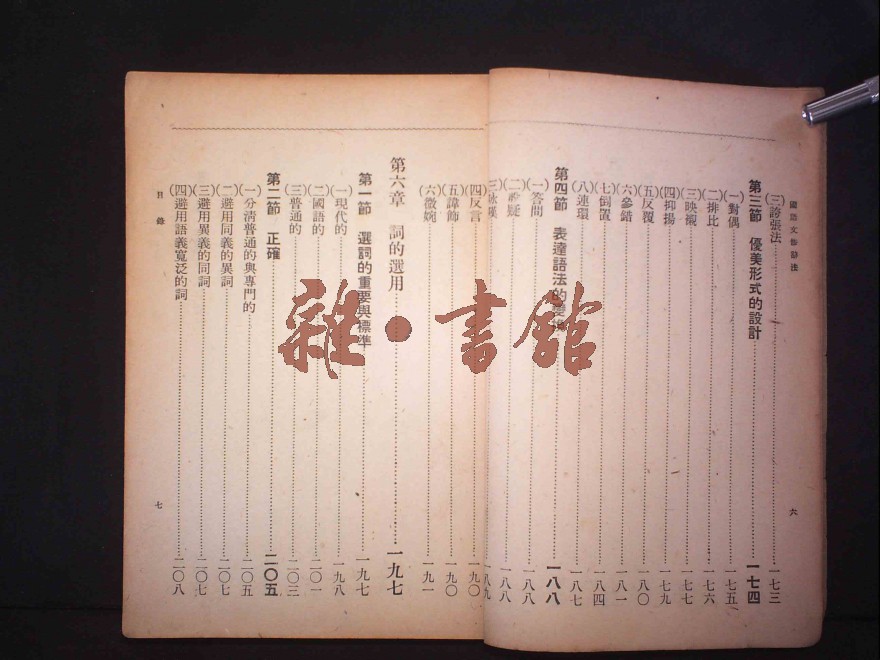 國語文修辭法
(三)誇張法……一七三
第三節 優美形式的設計……一七四
(一)對偶……一七五
(二)排比……一七六
(三)映襯……一七七
(四)抑揚……一七九
(五)反覆……一八〇
(六)參錯……一八一
(七)倒置……一八四
(八)連環……一八七
第四節 表達語法的變換……一八八
(一)答問……一八八
(二)設疑……一八八
(三)詠嘆……一八九
六
(四)反言……一九〇
(五)諱飾……一九〇
(六)微婉……一九一
第六章 詞的選用……一九七
第一節 選詞的重要與標準……一九七
(一)現代的……一九八
(二)國語的……二〇一
(三)普通的……二〇三
第二節 正確……二〇五
(一)分清普通的與專門的……二〇五
(二)避用同義的異詞……二〇七
(三)避用異義的同詞……二〇七
(四)避用語義寬泛的詞……二〇八
目錄
七
雜·書館